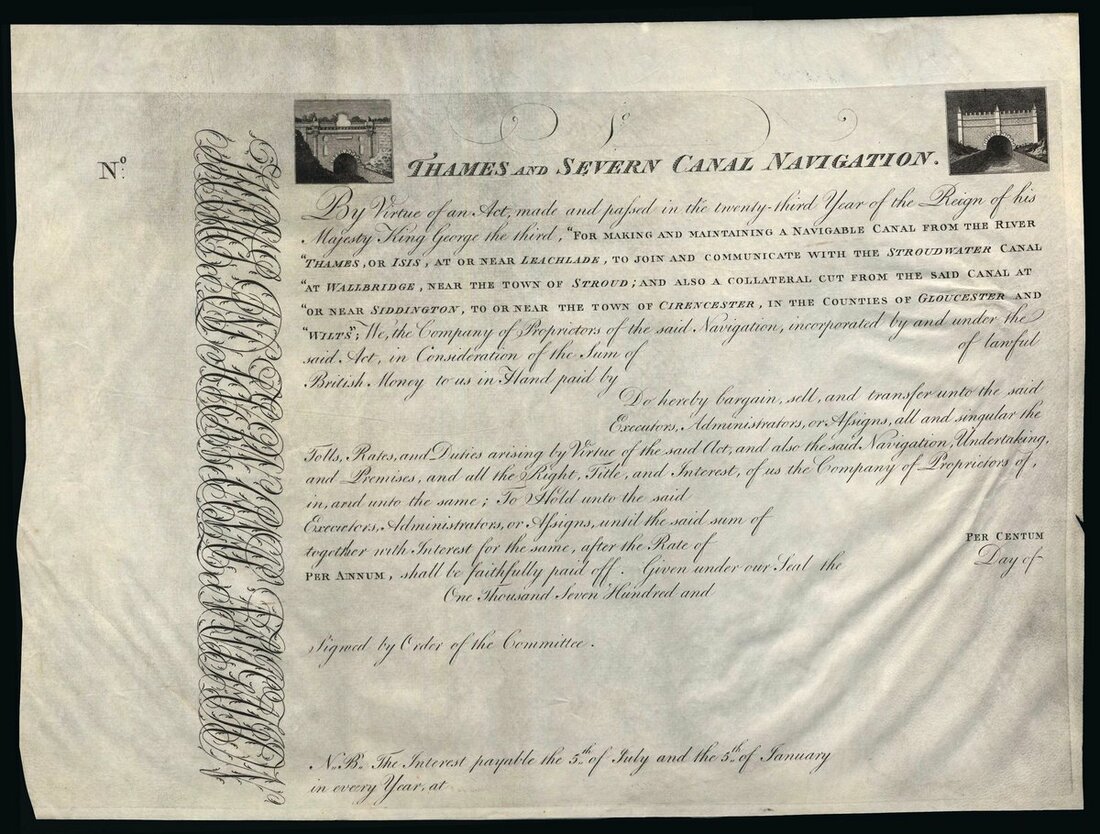 Nº.
THAMES AND SEVERN CANAL NAVIGATION.
By Virtue of an Act, made and paſsed in the twenty-third Year of the Reign of his
Majesty King George the third, "FOR MAKING AND MAINTAINING A NAVIGABLE CANAL FROM THE RIVER
"THAMES, OR ISIS, AT OR NEAR LEACHLADE, TO JOIN AND COMMUNICATE WITH THE STROUDWATER CANAL
"AT WALLBRIDGE, NEAR THE TOWN OF STROUD; AND ALSO A COLLATERAL CUT FROM THE SAID CANAL AT
"OR NEAR SIDDINGTON, TO OR NEAR THE TOWN OF CIRENCESTER, IN THE COUNTIES OF GLOUCESTER AND
"WILTS"; We, the Company of Proprietors of the said Navigation, incorporated by and under the
said Act, in Consideration of the Sum of of lawful
British Money to us in Hand paid by
Do hereby bargain, sell, and transfer unto the said
Executors, Administrators, or Aſsigns, all and singular the
Tolls, Rates, and Duties arising by Virtue of the said Act, and also the said Navigation, Undertaking,
and Premises, and all the Right, Title, and Interest, of us the Company of Proprietors of,
in, and unto the same; To Hold unto the said
Executors, Administrators, or Aſsigns, until the said sum of
together with Interest for the same, after the Rate of PER CENTUM
PER ANNUM, shall be faithfully paid off. Given under our Seal the Day of
One Thousand Seven Hundred and
Signed by Order of the Committee.
N.B. The Interest payable the 5th of July and the 5th of January
in every Year, at